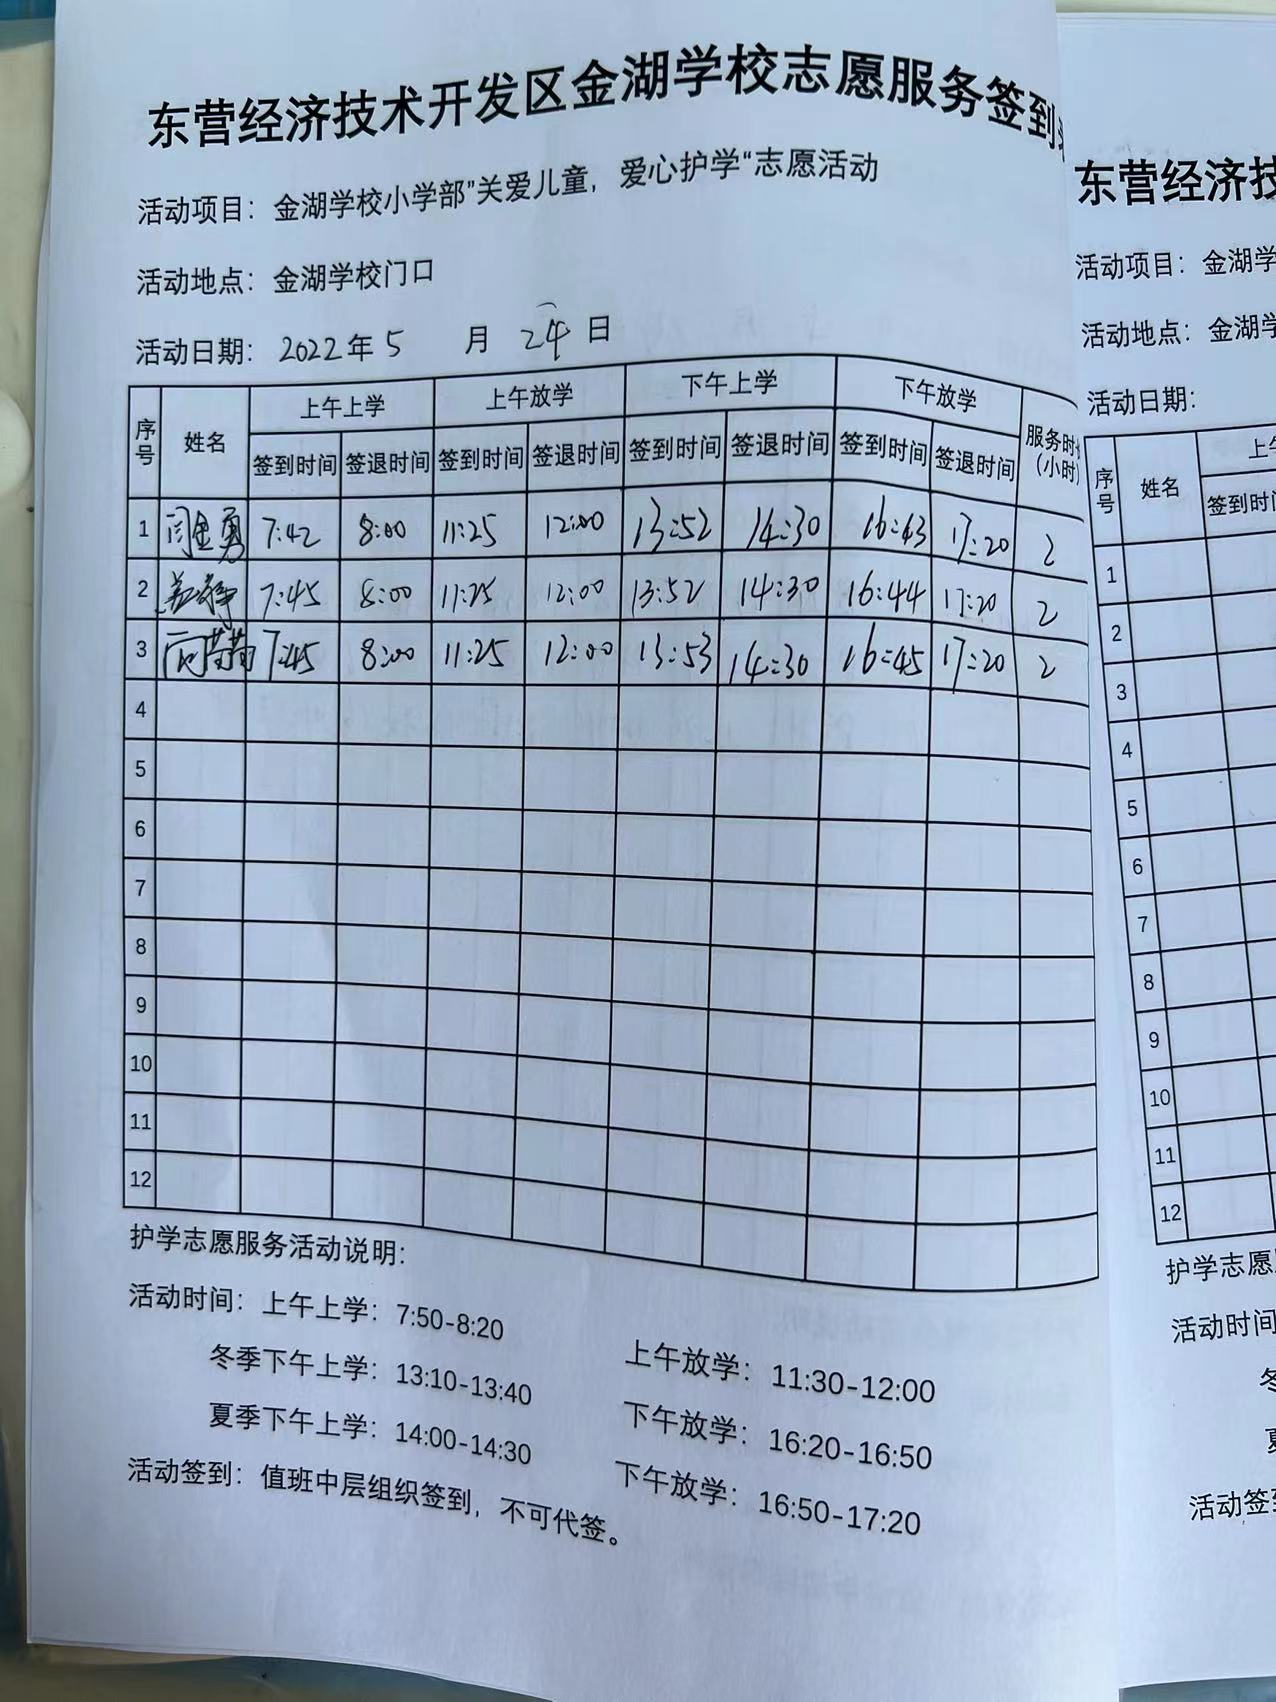 东营经济技术开发区金湖学校志愿服务签到
活动项目：金湖学校小学部"关爱儿童，爱心护学"志愿活动
活动地点：金湖学校门口
活动日期：2022年5 月 24 日
序号 姓名 上午上学 上午放学 下午上学 下午放学 服务时(小时)
签到时间 签退时间 签到时间 签退时间 签到时间 签退时间 签到时间 签退时间
1 闫金勇 7:42 8:00 11:25 12:00 13:52 14:30 16:43 17:20 2
2 7:45 8:00 11:25 12:00 13:52 14:30 16:44 17:20 2
3 7:45 8:00 11:25 12:00 13:53 14:30 16:45 17:20 2
4
5
6
7
8
9
10
11
12
护学志愿服务活动说明：
活动时间：上午上学：7:50-8:20 上午放学：11:30-12:00
冬季下午上学：13:10-13:40 下午放学：16:20-16:50
夏季下午上学：14:00-14:30 下午放学：16:50-17:20
活动签到：值班中层组织签到，不可代签。
东营经济技
活动项目：金湖学
活动地点：金湖学
活动日期：
序号 姓名 上午
签到时间
1
2
3
4
5
6
7
8
9
10
11
12
护学志愿
活动时间
冬
夏
活动签到